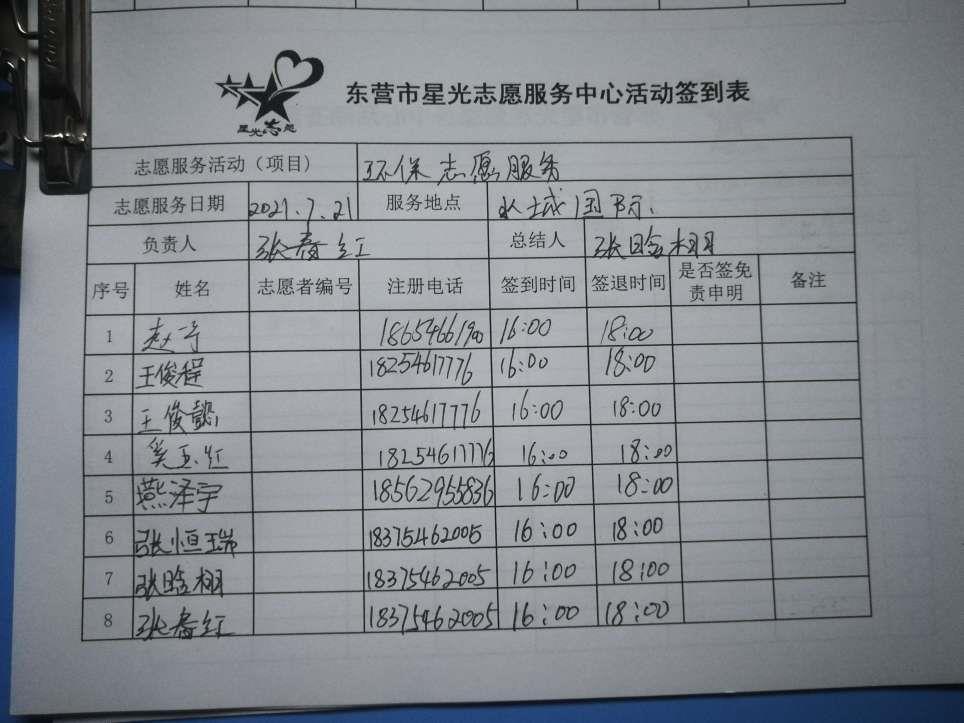 星光志愿
东营市星光志愿服务中心活动签到表
志愿服务活动（项目） 环保志愿服务
志愿服务日期 2021.7.21 服务地点 水城国际.
负责人 张春红 总结人 张晗栩
序号 姓名 志愿者编号 注册电话 签到时间 签退时间 是否签免责申明 备注
1 赵子 18654661900 16:00 18:00
2 王俊程 18254617776 16:00 18:00
3 王俊懿 18254617776 16:00 18:00
4 奚玉红 18254617776 16:00 18:00
5 燕泽宇 18562955836 16:00 18:00
6 张恒瑞 18375462005 16:00 18:00
7 张晗栩 18375462005 16:00 18:00
8 张春红 18375462005 16:00 18:00